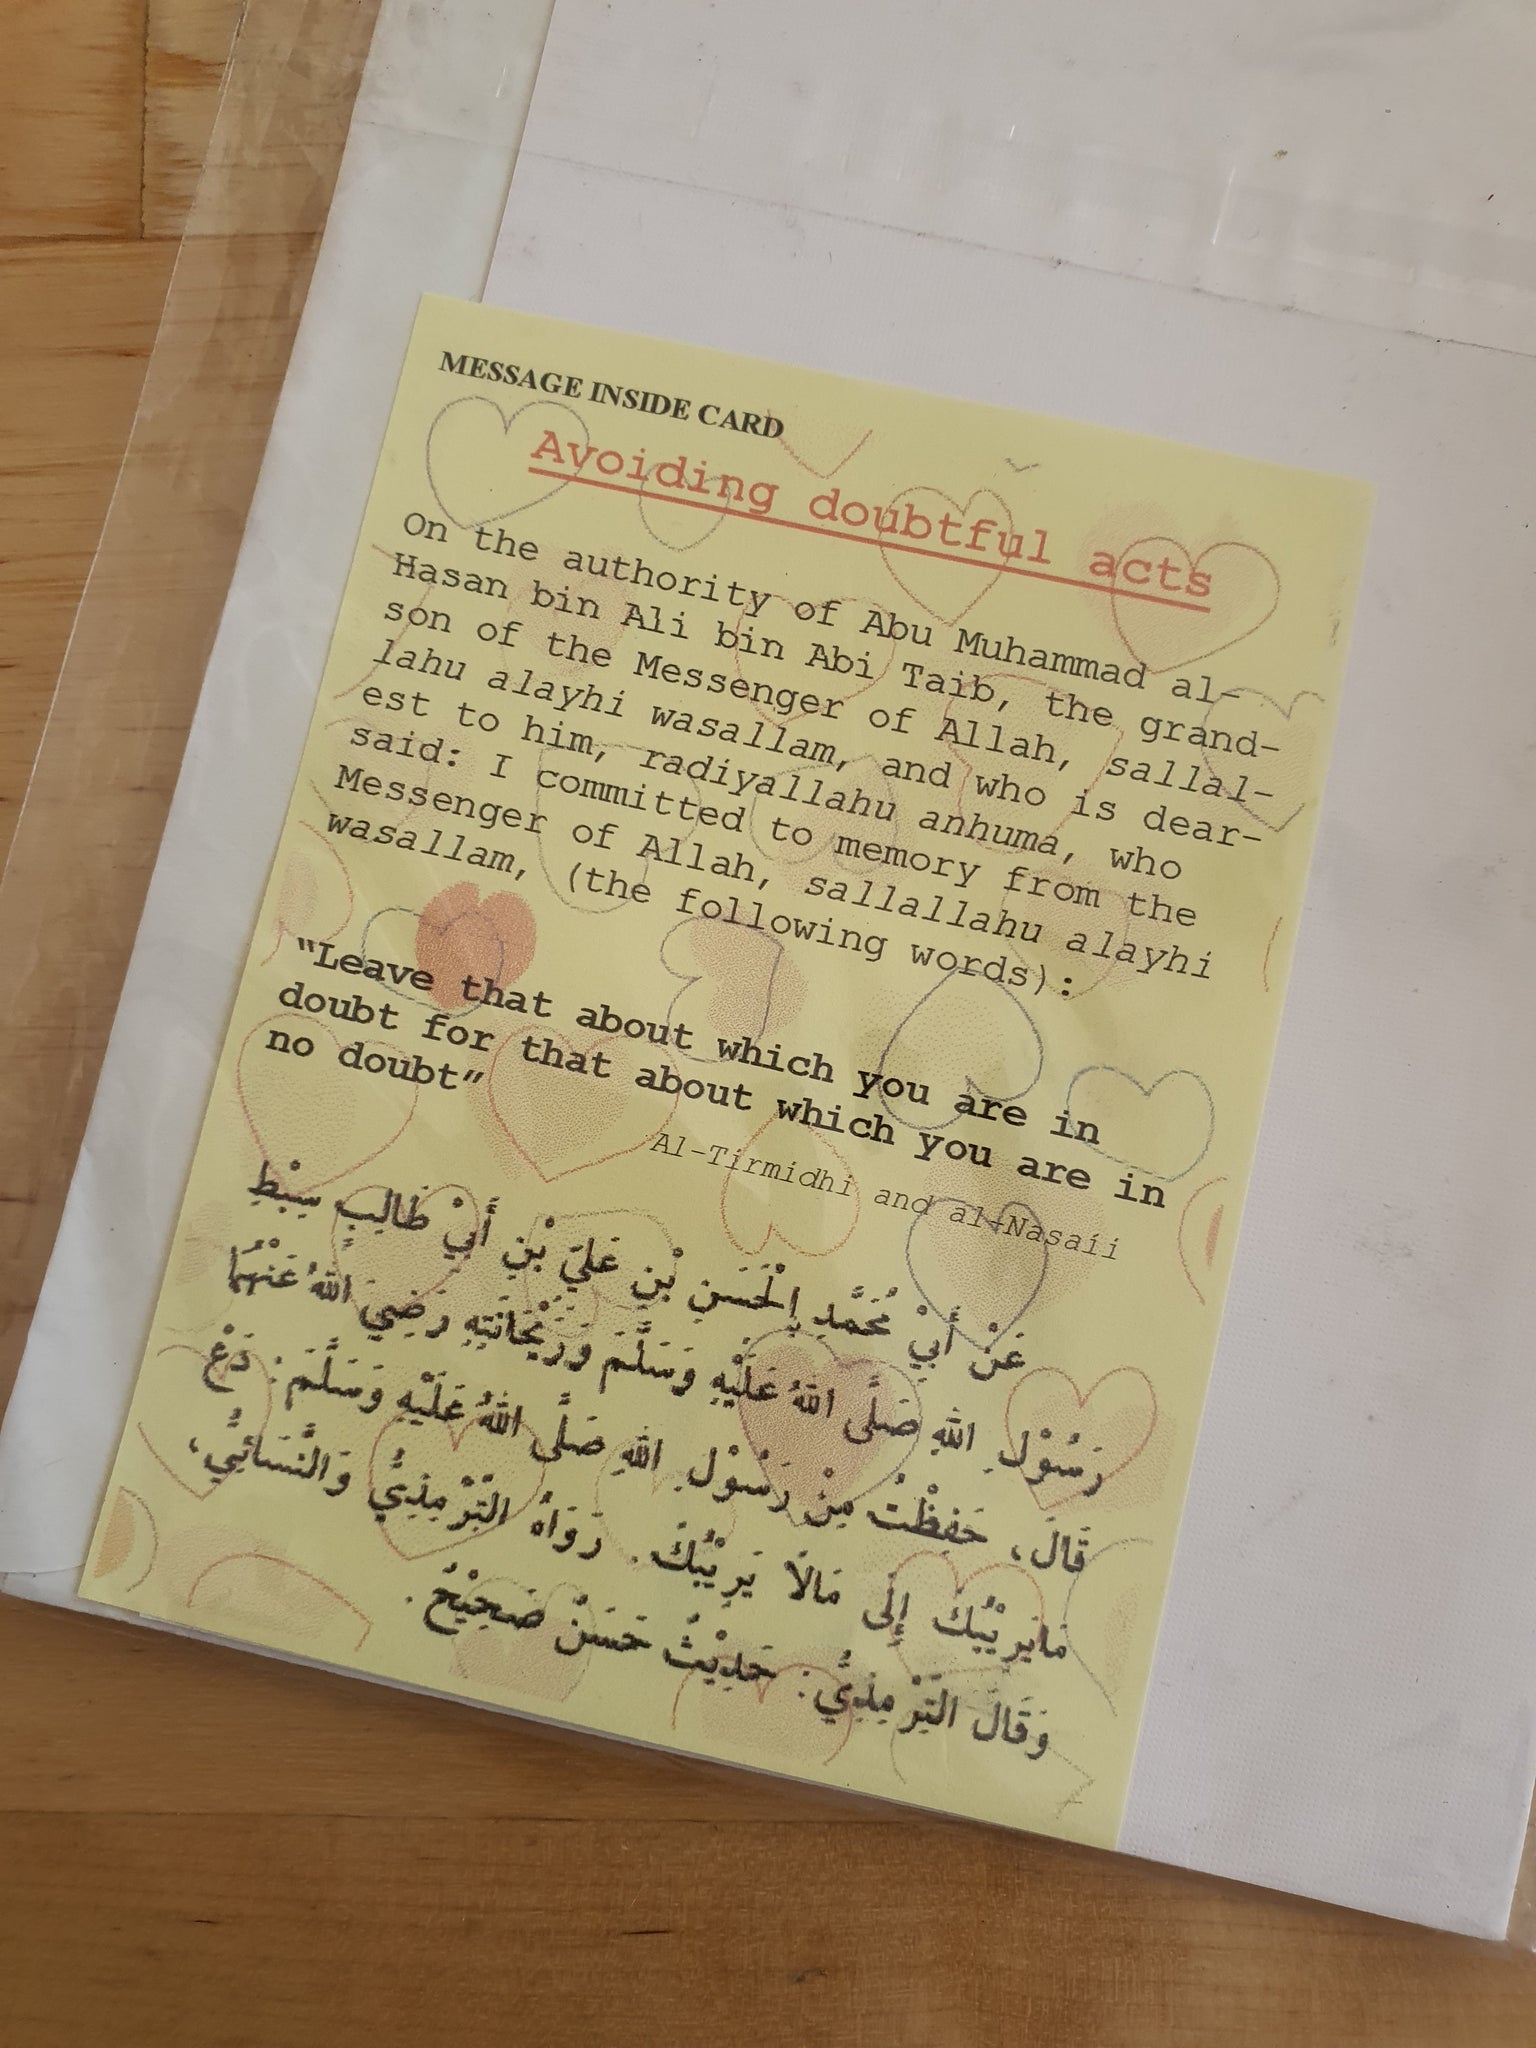 MESSAGE INSIDE CARD
Avoiding doubtful acts
On the authority of Abu Muhammad al-
Hasan bin Ali bin Abi Taib, the grand-
son of the Messenger of Allah, sallal-
lahu alayhi wasallam, and who is dear-
est to him, radiyallahu anhuma, who
said: I committed to memory from the
Messenger of Allah, sallallahu alayhi
wasallam, (the following words):
"Leave that about which you are in
doubt for that about which you are in
no doubt"
Al-Tirmidhi and al-Nasaíi
عَنْ أَبِيْ مُحَمَّدِ اِلْحَسَنِ بْنِ عَلِيّ بْنِ أَبِيْ طَالِبٍ سِبْطِ
رَسُوْلِ اللهِ صَلَّى اللهُ عَلَيْهِ وَسَلَّمَ وَرَيْحَانَتِهِ رَضِيَ اللهُ عَنْهُمَا
قَالَ، حَفِظْتُ مِنْ رَسُوْلِ اللهِ صَلَّى اللهُ عَلَيْهِ وَسَلَّمَ: دَعْ
مَايَرِيْبُكَ إِلَى مَالَا يَرِيْبُكَ. رَوَاهُ التِّرْمِذِيُّ وَالنَّسَائِيُّ،
وَقَالَ التِّرْمِذِيُّ: حَدِيْثٌ حَسَنٌ صَحِيْحٌ.